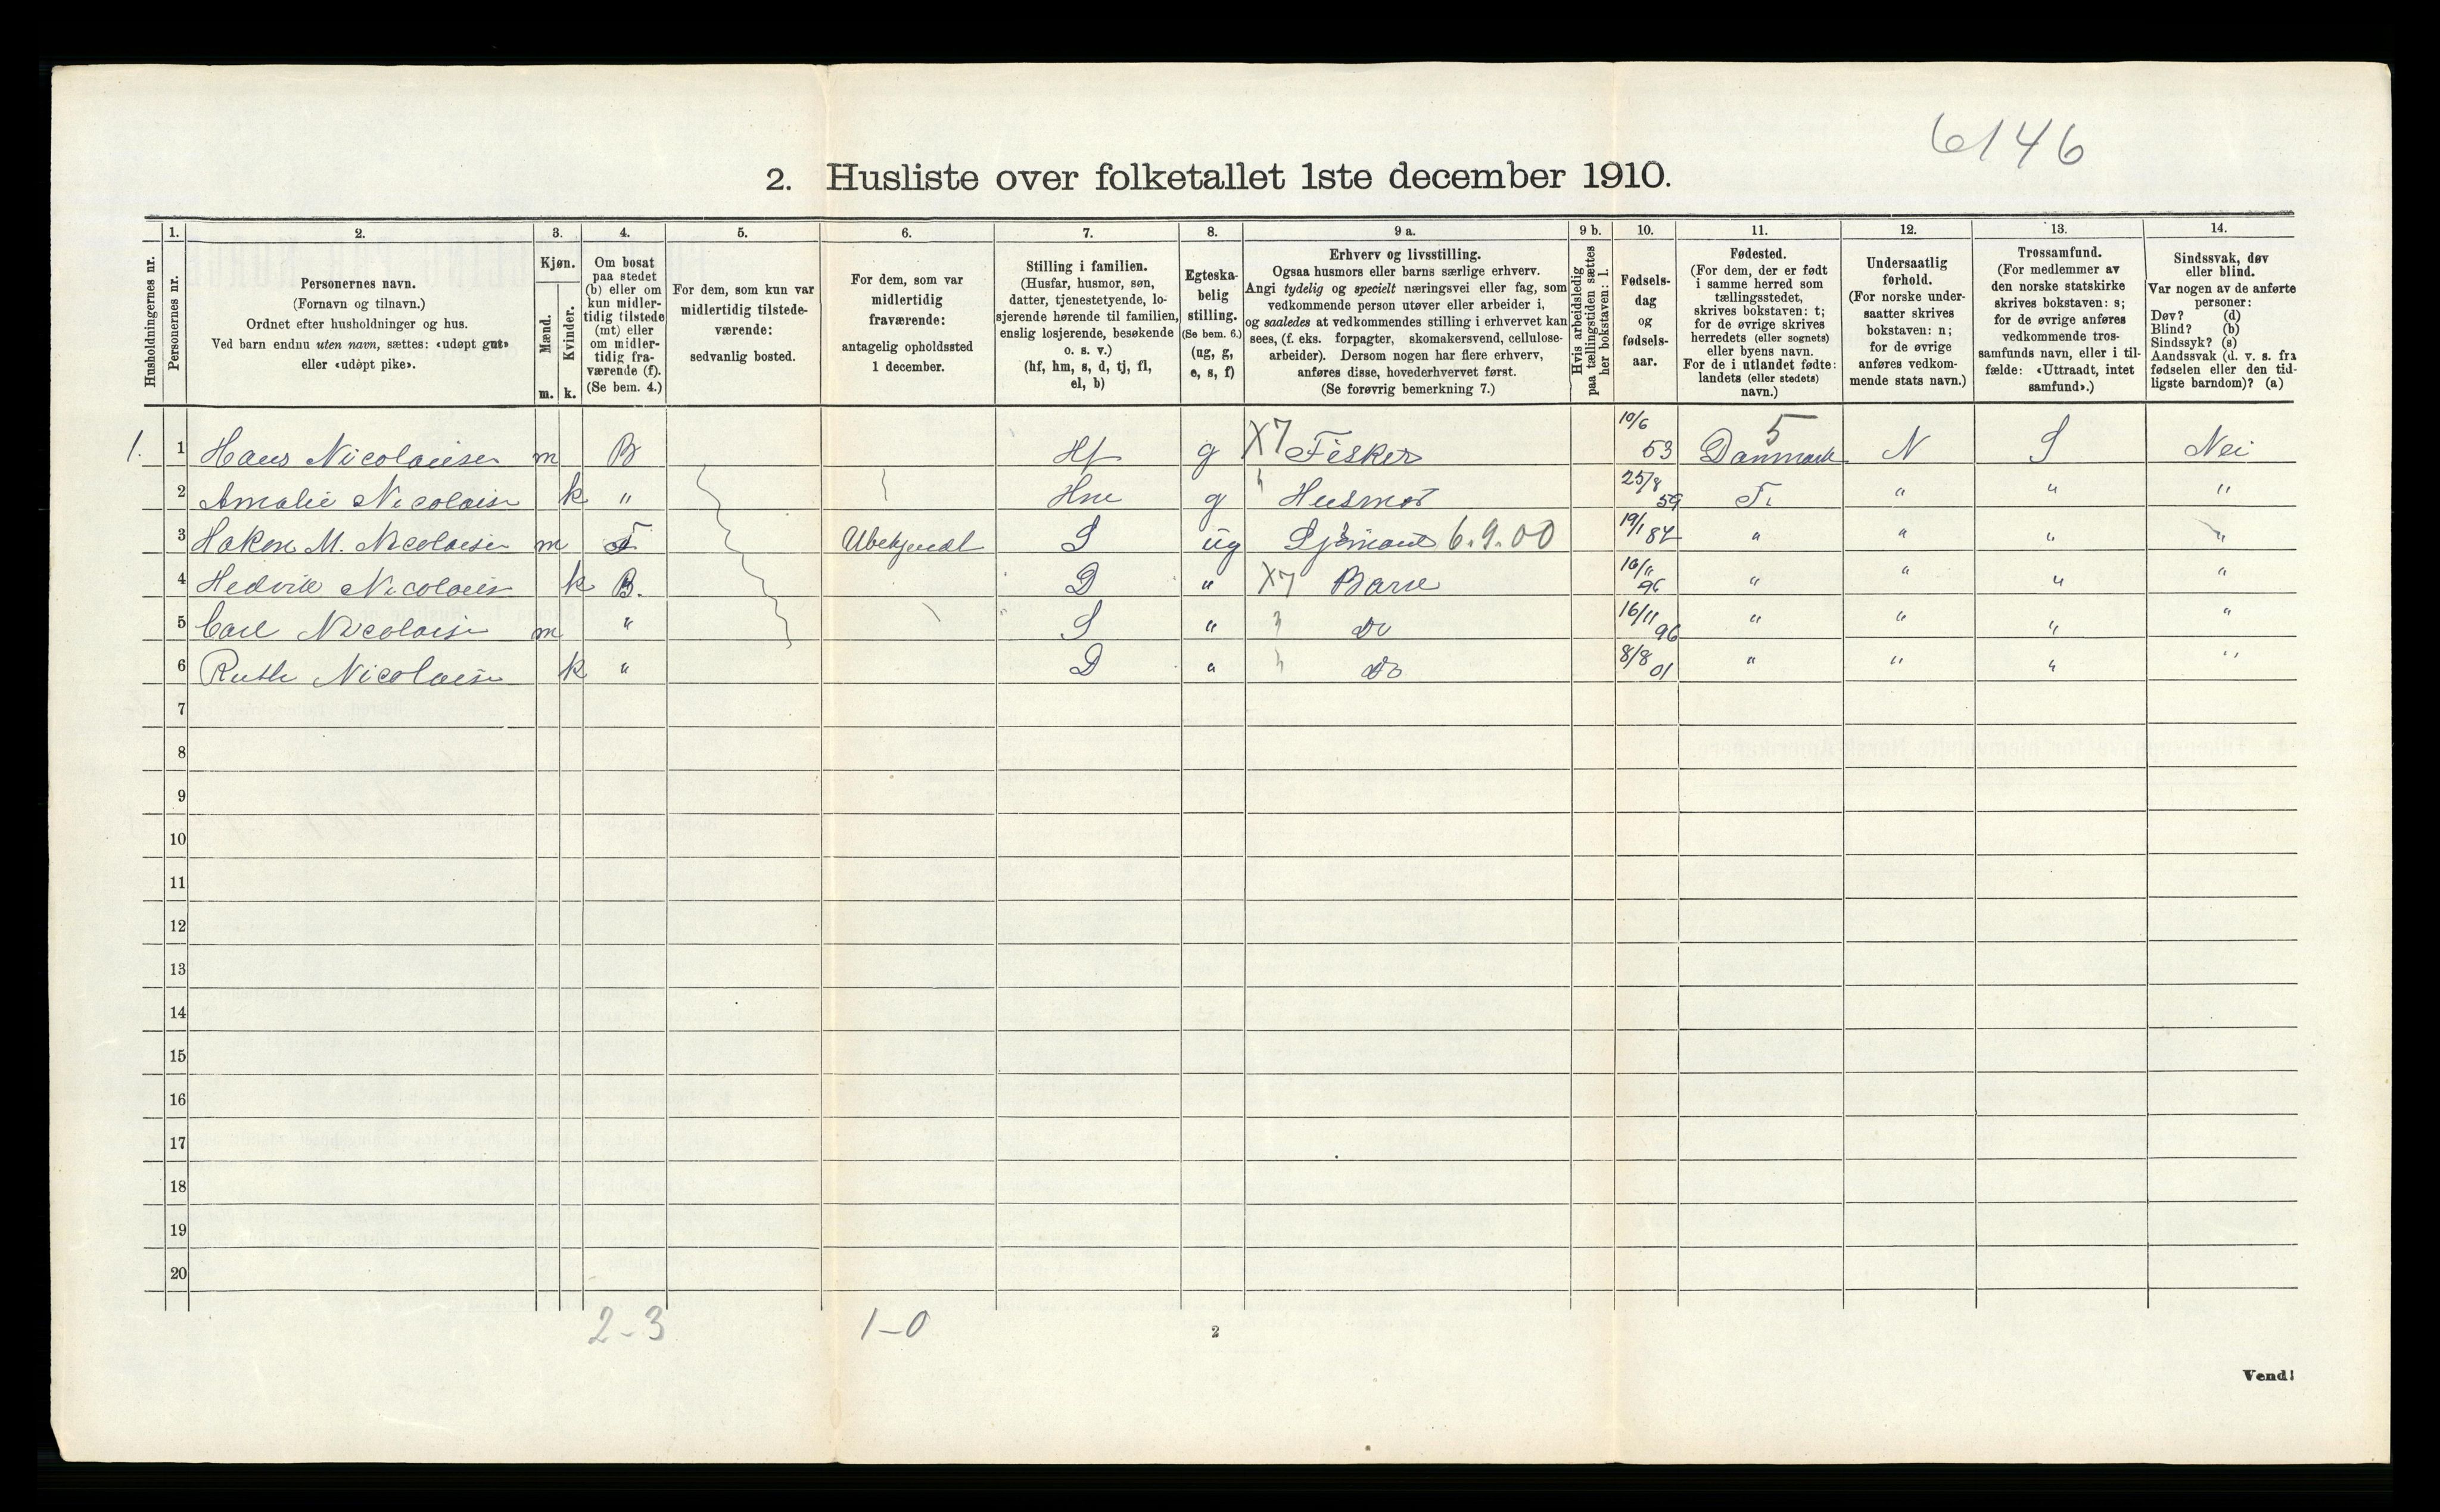 6146
2. Husliste over folketallet 1ste december 1910.
Husholdningernes nr.
1.
Personernes nr.
2.
Personernes navn.
(Fornavn og tilnavn.)
Ordnet efter husholdninger og hus.
Ved barn endnu uten navn, sættes: «udøpt gut»
eller «udøpt pike».
3.
Kjøn.
Mænd.
Kvinder.
m. k.
4.
Om bosat
paa stedet
(b) eller om
kun midler-
tidig tilstede
(mt) eller
om midler-
tidig fra-
værende (f).
(Se bem. 4.)
5.
For dem, som kun var
midlertidig tilstede-
værende:
sedvanlig bosted.
6.
For dem, som var
midlertidig
fraværende:
antagelig opholdssted
1 december.
7.
Stilling i familien.
(Husfar, husmor, søn,
datter, tjenestetyende, lo-
sjerende hørende til familien,
enslig losjerende, besøkende
o. s. v.)
(hf, hm, s, d, tj, fl,
el, b)
8.
Egteska-
belig
stilling.
(Se bem. 6.)
(ug, g,
e, s, f)
9 a.
Erhverv og livsstilling.
Ogsaa husmors eller barns særlige erhverv.
Angi tydelig og specielt næringsvei eller fag, som
vedkommende person utøver eller arbeider i,
og saaledes at vedkommendes stilling i erhvervet kan
sees, (f. eks. forpagter, skomakersvend, cellulose-
arbeider). Dersom nogen har flere erhverv,
anføres disse, hovederhvervet først.
(Se forøvrig bemerkning 7.)
9 b.
Hvis arbeidsledig
paa tællingstiden sættes
her bokstaven: l.
10.
Fødsels-
dag
og
fødsels-
aar.
11.
Fødested.
(For dem, der er født
i samme herred som
tællingsstedet,
skrives bokstaven: t;
for de øvrige skrives
herredets (eller sognets)
eller byens navn.
For de i utlandet fødte:
landets (eller stedets)
navn.)
12.
Undersaatlig
forhold.
(For norske under-
saatter skrives
bokstaven: n;
for de øvrige
anføres vedkom-
mende stats navn.)
13.
Trossamfund.
(For medlemmer av
den norske statskirke
skrives bokstaven: s;
for de øvrige anføres
vedkommende tros-
samfunds navn, eller i til-
fælde: «Uttraadt, intet
samfund».)
14.
Sindssvak, døv
eller blind.
Var nogen av de anførte
personer:
Døv? (d)
Blind? (b)
Sindssyk? (s)
Aandssvak (d. v. s. fra
fødselen eller den tid-
ligste barndom)? (a)
1. 1 Hans Nicolaisen m B Hf g X7 Fisker 10/6 53 5 Danmark N S Nei
2 Amalie Nicolaisn k " Hm g " Husmor 25/8 59 T. " " "
3 Hakon M. Nicolaisen m F Ubekjendt S ug Sjømand 6.9.00 19/1 " " " "
4 Nicolais k B. D " X7 Barn 96 " " " "
5 Carl Nicolaisn m " S " " Do 16/11 96 " " " "
6 Ruth Nicolaisn k " D " " Do 8/8 01 " " " "
7
8
9
10
11
12
13
14
15
16
17
18
19
20
2-3 1-0
2
Vend!